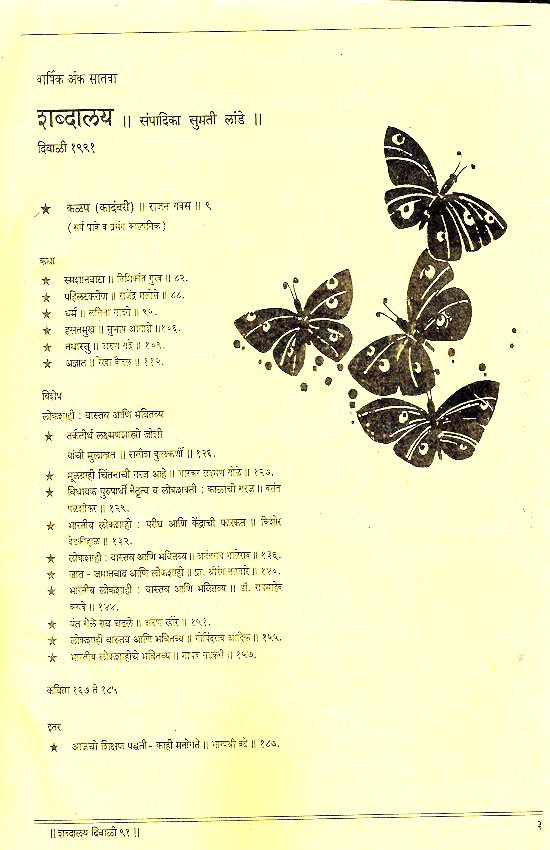 वार्षिक अंक सातवा
शब्दालय || संपादिका सुमती लांडे ||
दिवाळी १९९१
★ कळप (कादंबरी) || राजन गवस || ९
(सर्व पात्रे व प्रसंग काल्पनिक)
कथा
★ स्मशानवाटा || निशिकांत गुरव || ८२.
★ || राजेंद्र मलोसे || ८८.
★ धर्म || कविता || ९५.
★ हसतमुख || सुभाष आवारी || १०६.
★ तथास्तु || अरुण गद्रे || १०९.
★ अज्ञात || रेखा बैजल || ११२.
विशेष
लोकशाही : वास्तव आणि भवितव्य
★ तर्कतीर्थ लक्ष्मणशास्त्री जोशी
यांची मुलाखत || सतीश कुलकर्णी || १२६.
★ मूलग्राही चिंतनाची गरज आहे || भास्कर लक्ष्मण भोळे || १२७.
★ विधायक पुरुषार्थी नेतृत्व व लोकशक्ती : काळाची गरज || वसंत
पळशीकर || १२९.
★ भारतीय लोकशाही : परीघ आणि केंद्राची फारकत || किशोर
बेडकिहाळ || १३२.
★ लोकशाही : वास्तव आणि भवितव्य || अनंतराव भालेराव || १३६.
★ जात - जमातवाद आणि लोकशाही || प्रा. || १४०.
★ भारतीय लोकशाही : वास्तव आणि भवितव्य || डॉ. रावसाहेब
कसबे || १४४.
★ पंत गेले राव चढले || अरुण खोरे || १५१.
★ लोकशाही वास्तव आणि भवितव्य || गोविंदराव आदिक || १५५.
★ भारतीय लोकशाहीचे भवितव्य || माधव गडकरी || १५७.
कविता १६७ ते १८५
इतर
★ आजची शिक्षण पद्धती - काही मनोगते || भाग्यश्री || १८७.
|| शब्दालय दिवाळी ९१ ||
३